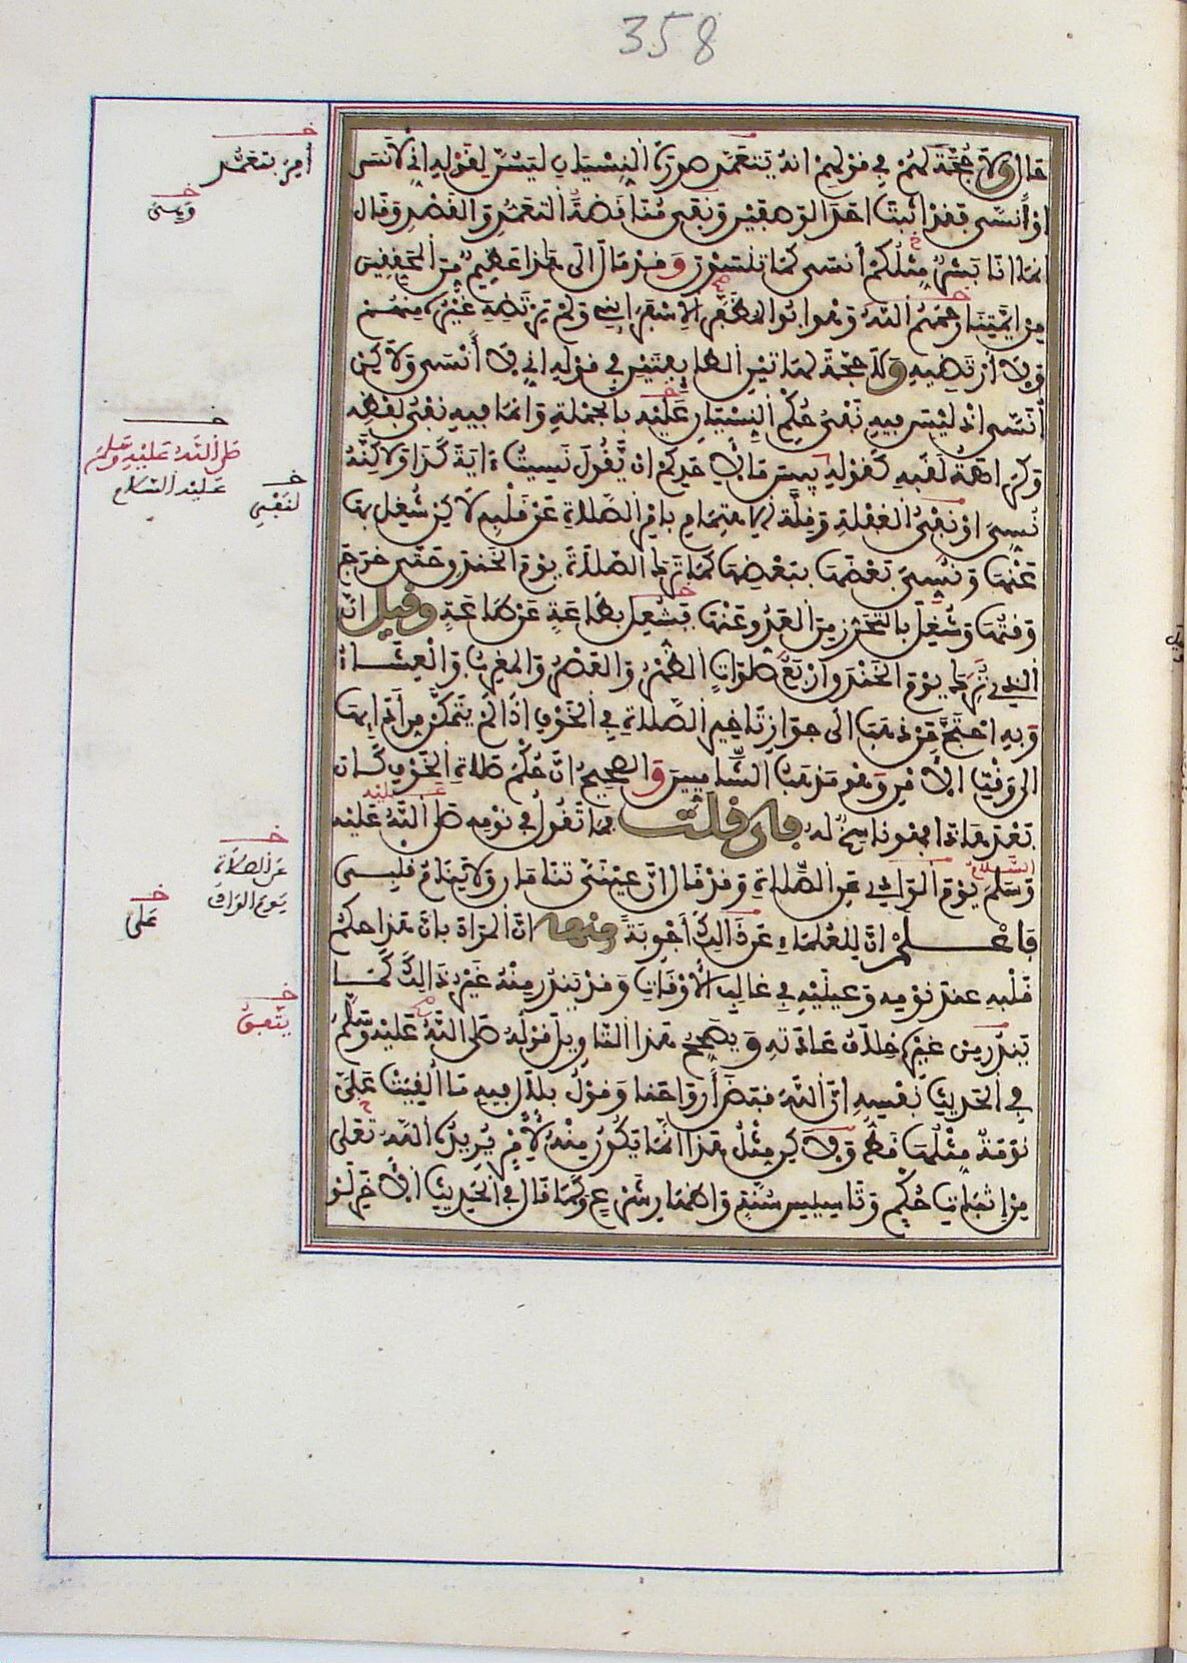 358
حال ولا حجة لهم في قولهم انه يتعمد صورة النسيان ليسن لقوله اني لأنسى
او أنسى فقد اثبت احد الوصفين ونفى مناقضة التعمد والقصد وقال
انما انا بشر مثلكم أنسى كما تنسون وقد مال الى هذا عظيم من المحققين
من ائمتنا رحمهم الله وهو ابو المظفر الاسفرايني ولم يرتضه غيره منهم
ولا أرتضيه ولا حجة لهاتين الطايفتين في قوله اني لا أنسى ولاكن
أنسى اذ ليس فيه نفي حكم النسيان عليه بالجملة وانما فيه نفي لفظه
وكراهة لقبه كقوله بيس ما لاحدكم ان يقول نسيت ءاية كذا ولاكنه
نسي او نفي الغفلة وقلة الاهتمام بامر الصلاة عن قلبه لاكن شغل بها
عنها ونسي بعضها ببعضها كما ترك الصلاة يوم الخندق حتى خرج
وقتها وشغل بالتحرز من العدو عنها فشغل بطاعة عن طاعة وقيل ان
الذي ترك يوم الخندق اربع صلوات الظهر والعصر والمغرب والعشاء
وبه احتج من ذهب الى جواز تاخير الصلاة في الخوف اذا لم يتمكن من أدايها
الى وقت الامن وهو مذهب الشاميين والصحيح ان حكم صلاة الخوف كان
بعد هاذا فهو ناسخ له فان قلت فما تقول في نومه صلى الله عليه
وسلم يوم الوادي عن الصلاة وقد قال ان عيني تنامان ولا ينام قلبي
فاعلم ان للعلماء عن ذالك أجوبة منها ان المراد بان هذا حكم
قلبه عند نومه وعينيه في غالب الأوقات وقد يندر منه غير ذالك كما
يندر من غيره خلاف عادته ويصحح هذا التاويل قوله صلى الله عليه وسلم
في الحديث نفسه ان الله قبض أرواحنا وقول بلال فيه ما ألقيت علي
نومة مثلها قط ولاكن مثل هذا انما يكون منه لأمر يريده الله تعلى
من اثبات حكم وتاسيس سنة واظهار شرع وكما قال في الحديث الاخر لو
خـ
أمر بتعمد
خـ
خـ
صلى الله عليه وسلم
عليه السلام
خـ
خـ
عن الصلاة
يوم الوادي
خـ
على
خـ
عليه
السلام